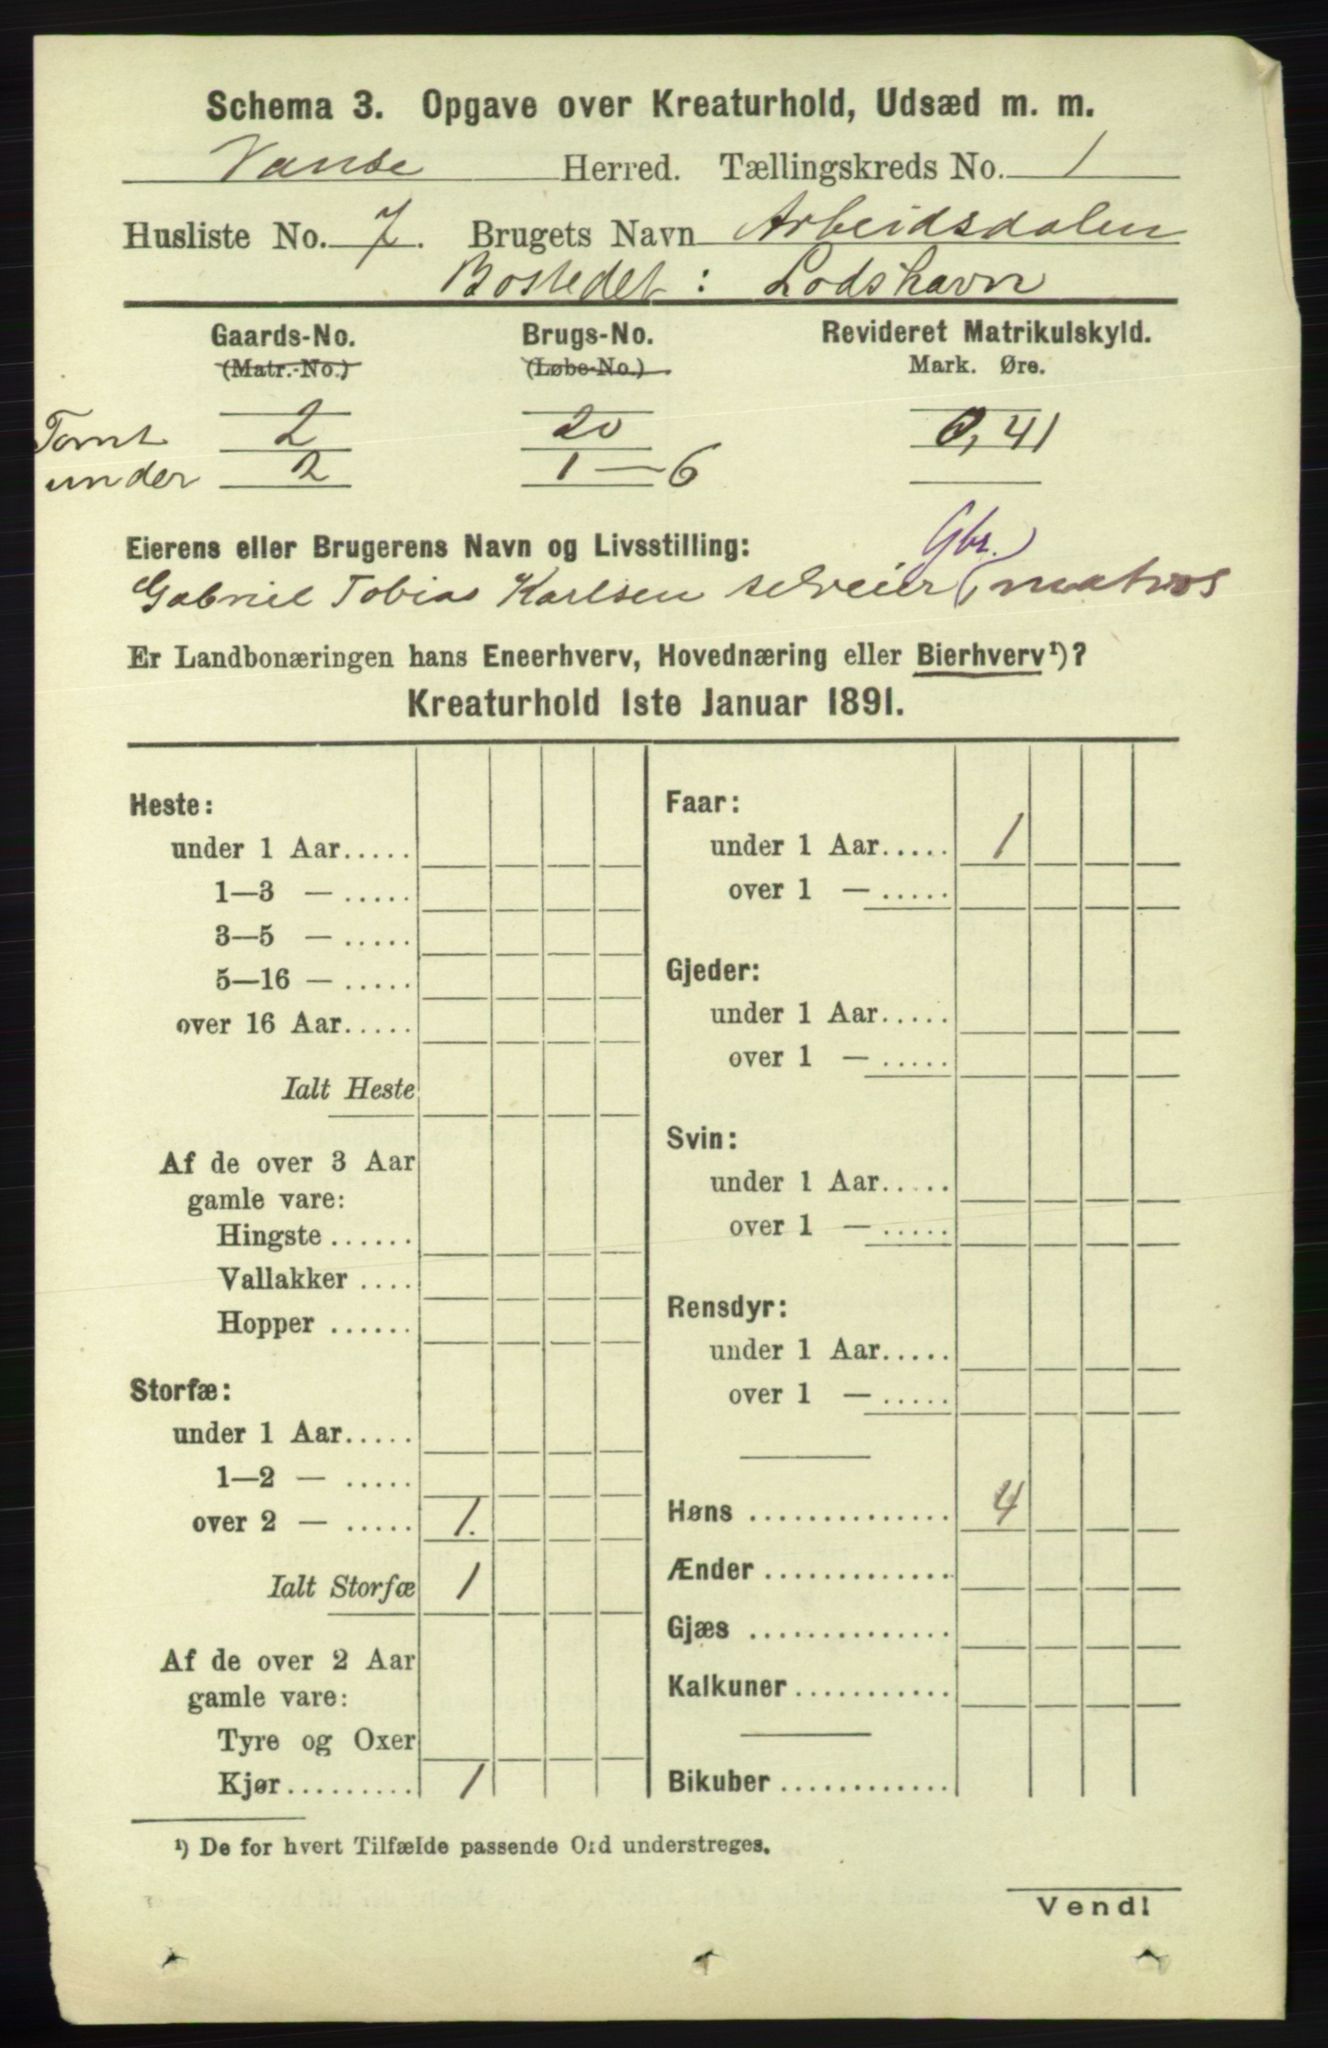 Schema 3. Opgave over Kreaturhold, Udsæd m. m.
Vanse Herred. Tællingskreds No. 1
Husliste No. 7. Brugets Navn Arbeidsdalen
Bostedet: Lodshavn
Gaards-No. Brugs-No. Revideret Matrikulskyld.
(Matr.-No.) (Løbe-No.) Mark. Øre.
Tomt 2 20 0,41
under 2 1—6
Eierens eller Brugerens Navn og Livsstilling: Gbr.
Gabriel Tobias Karlsen selveier, matros
Er Landbonæringen hans Eneerhverv, Hovednæring eller Bierhverv¹)?
Kreaturhold 1ste Januar 1891.
Heste:
under 1 Aar.....
1—3 — .....
3—5 — .....
5—16 — .....
over 16 Aar.....
Ialt Heste
Af de over 3 Aar
gamle vare:
Hingste ......
Vallakker ....
Hopper ......
Storfæ:
under 1 Aar.....
1—2 — .....
over 2 — ..... 1.
Ialt Storfæ 1
Af de over 2 Aar
gamle vare:
Tyre og Oxer
Kjør.......... 1
Faar:
under 1 Aar..... 1
over 1 — .....
Gjeder:
under 1 Aar.....
over 1 — .....
Svin:
under 1 Aar.....
over 1 — .....
Rensdyr:
under 1 Aar.....
over 1 — .....
Høns .............. 4
Ænder .............
Gjæs ..............
Kalkuner...........
Bikuber ............
¹) De for hvert Tilfælde passende Ord understreges.
Vend!